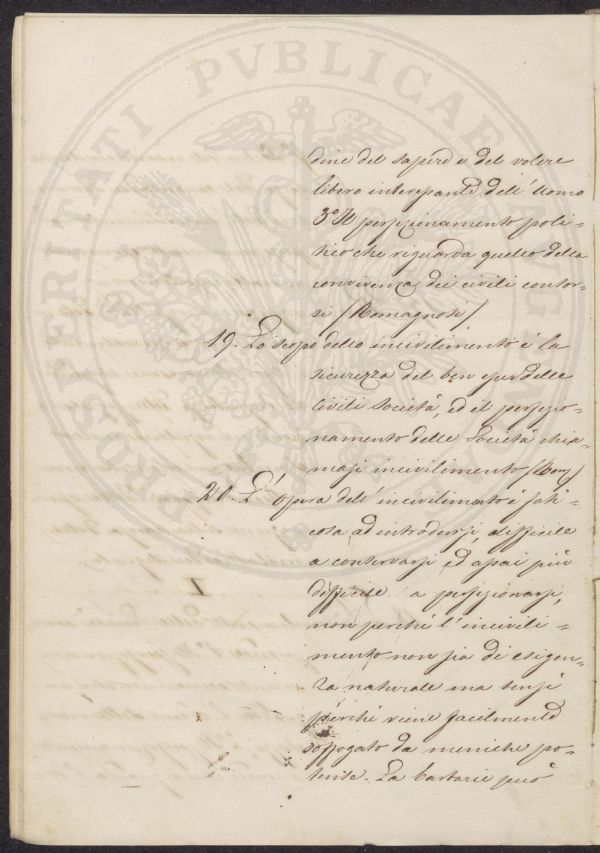 PROSPERITATI PVBLICAE AVGENDAE
dine del sapere e del volere
libero interessante dell'Uomo
3º Il perfezionamento poli-
tico che riguarda quello della
convivenza dei civili consor-
zi (Romagnosi)
19. Lo scopo dello incivilimento è la
sicurezza del ben esser delle
Civili Società, ed il perfezio-
namento delle Società chia-
masi incivilimento (Rom.)
20. L'Opera dell'incivilimento è fati-
cosa ad introdursi, difficile
a conservarsi ed assai più
difficile a perfezionarsi,
non perchè l'incivili-
mento non sia di esigen-
za naturale ma bensì
perchè viene facilmente
soffogato da nemiche po-
tenze. La barbarie può